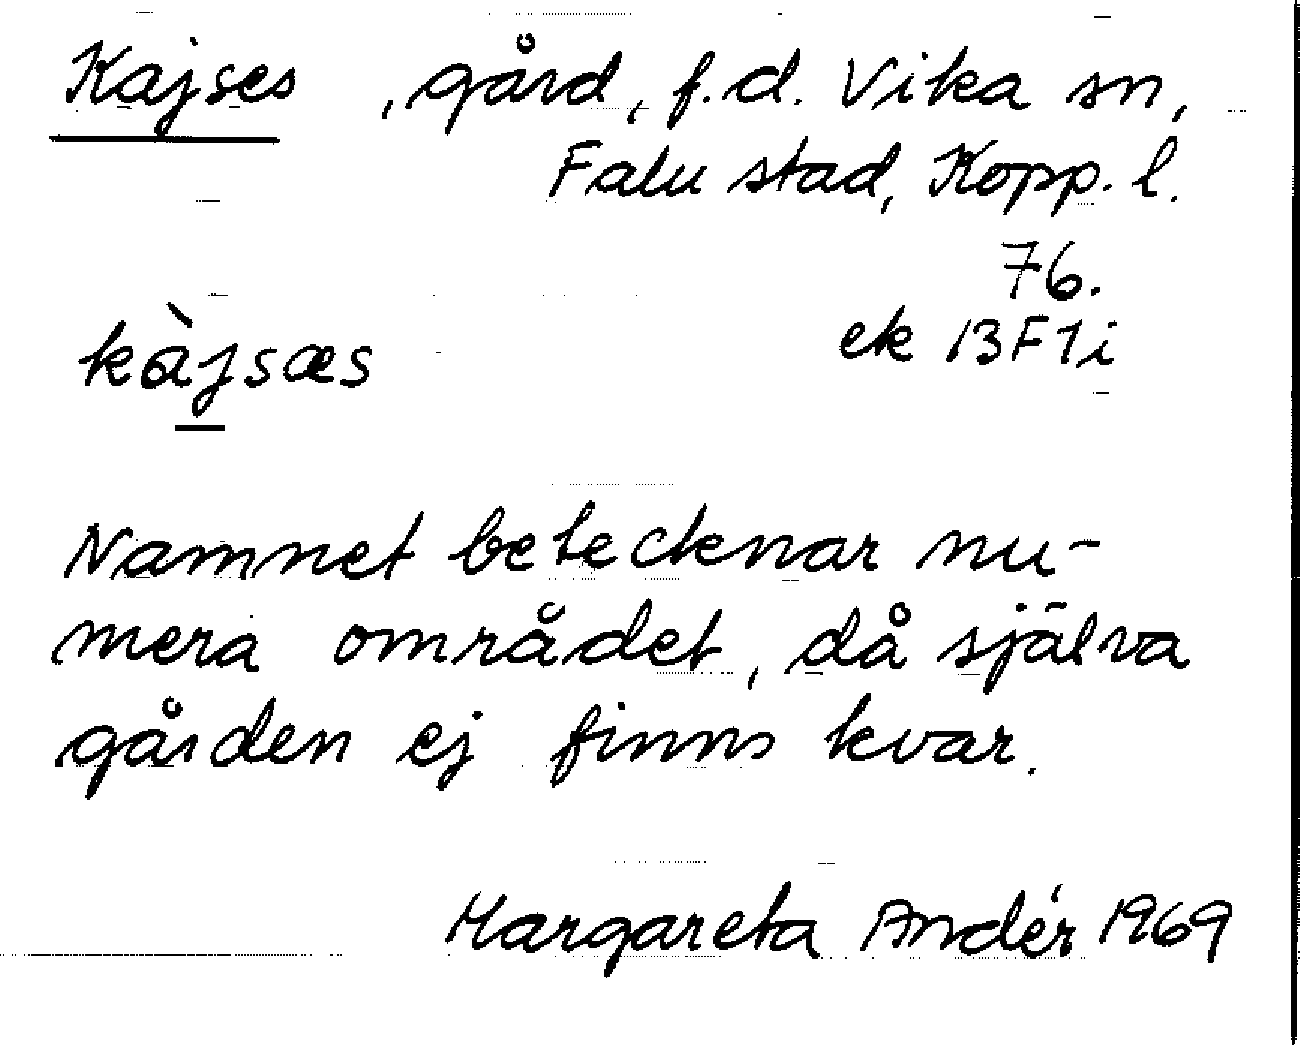 Kajses , gård, f.d. Vika sn,
Falu stad, Kopp. l.
76.
ek 13F1i
kàjsæs
Namnet betecknar nu-
mera området, då själva
gården ej finns kvar.
Margareta Andér 1969